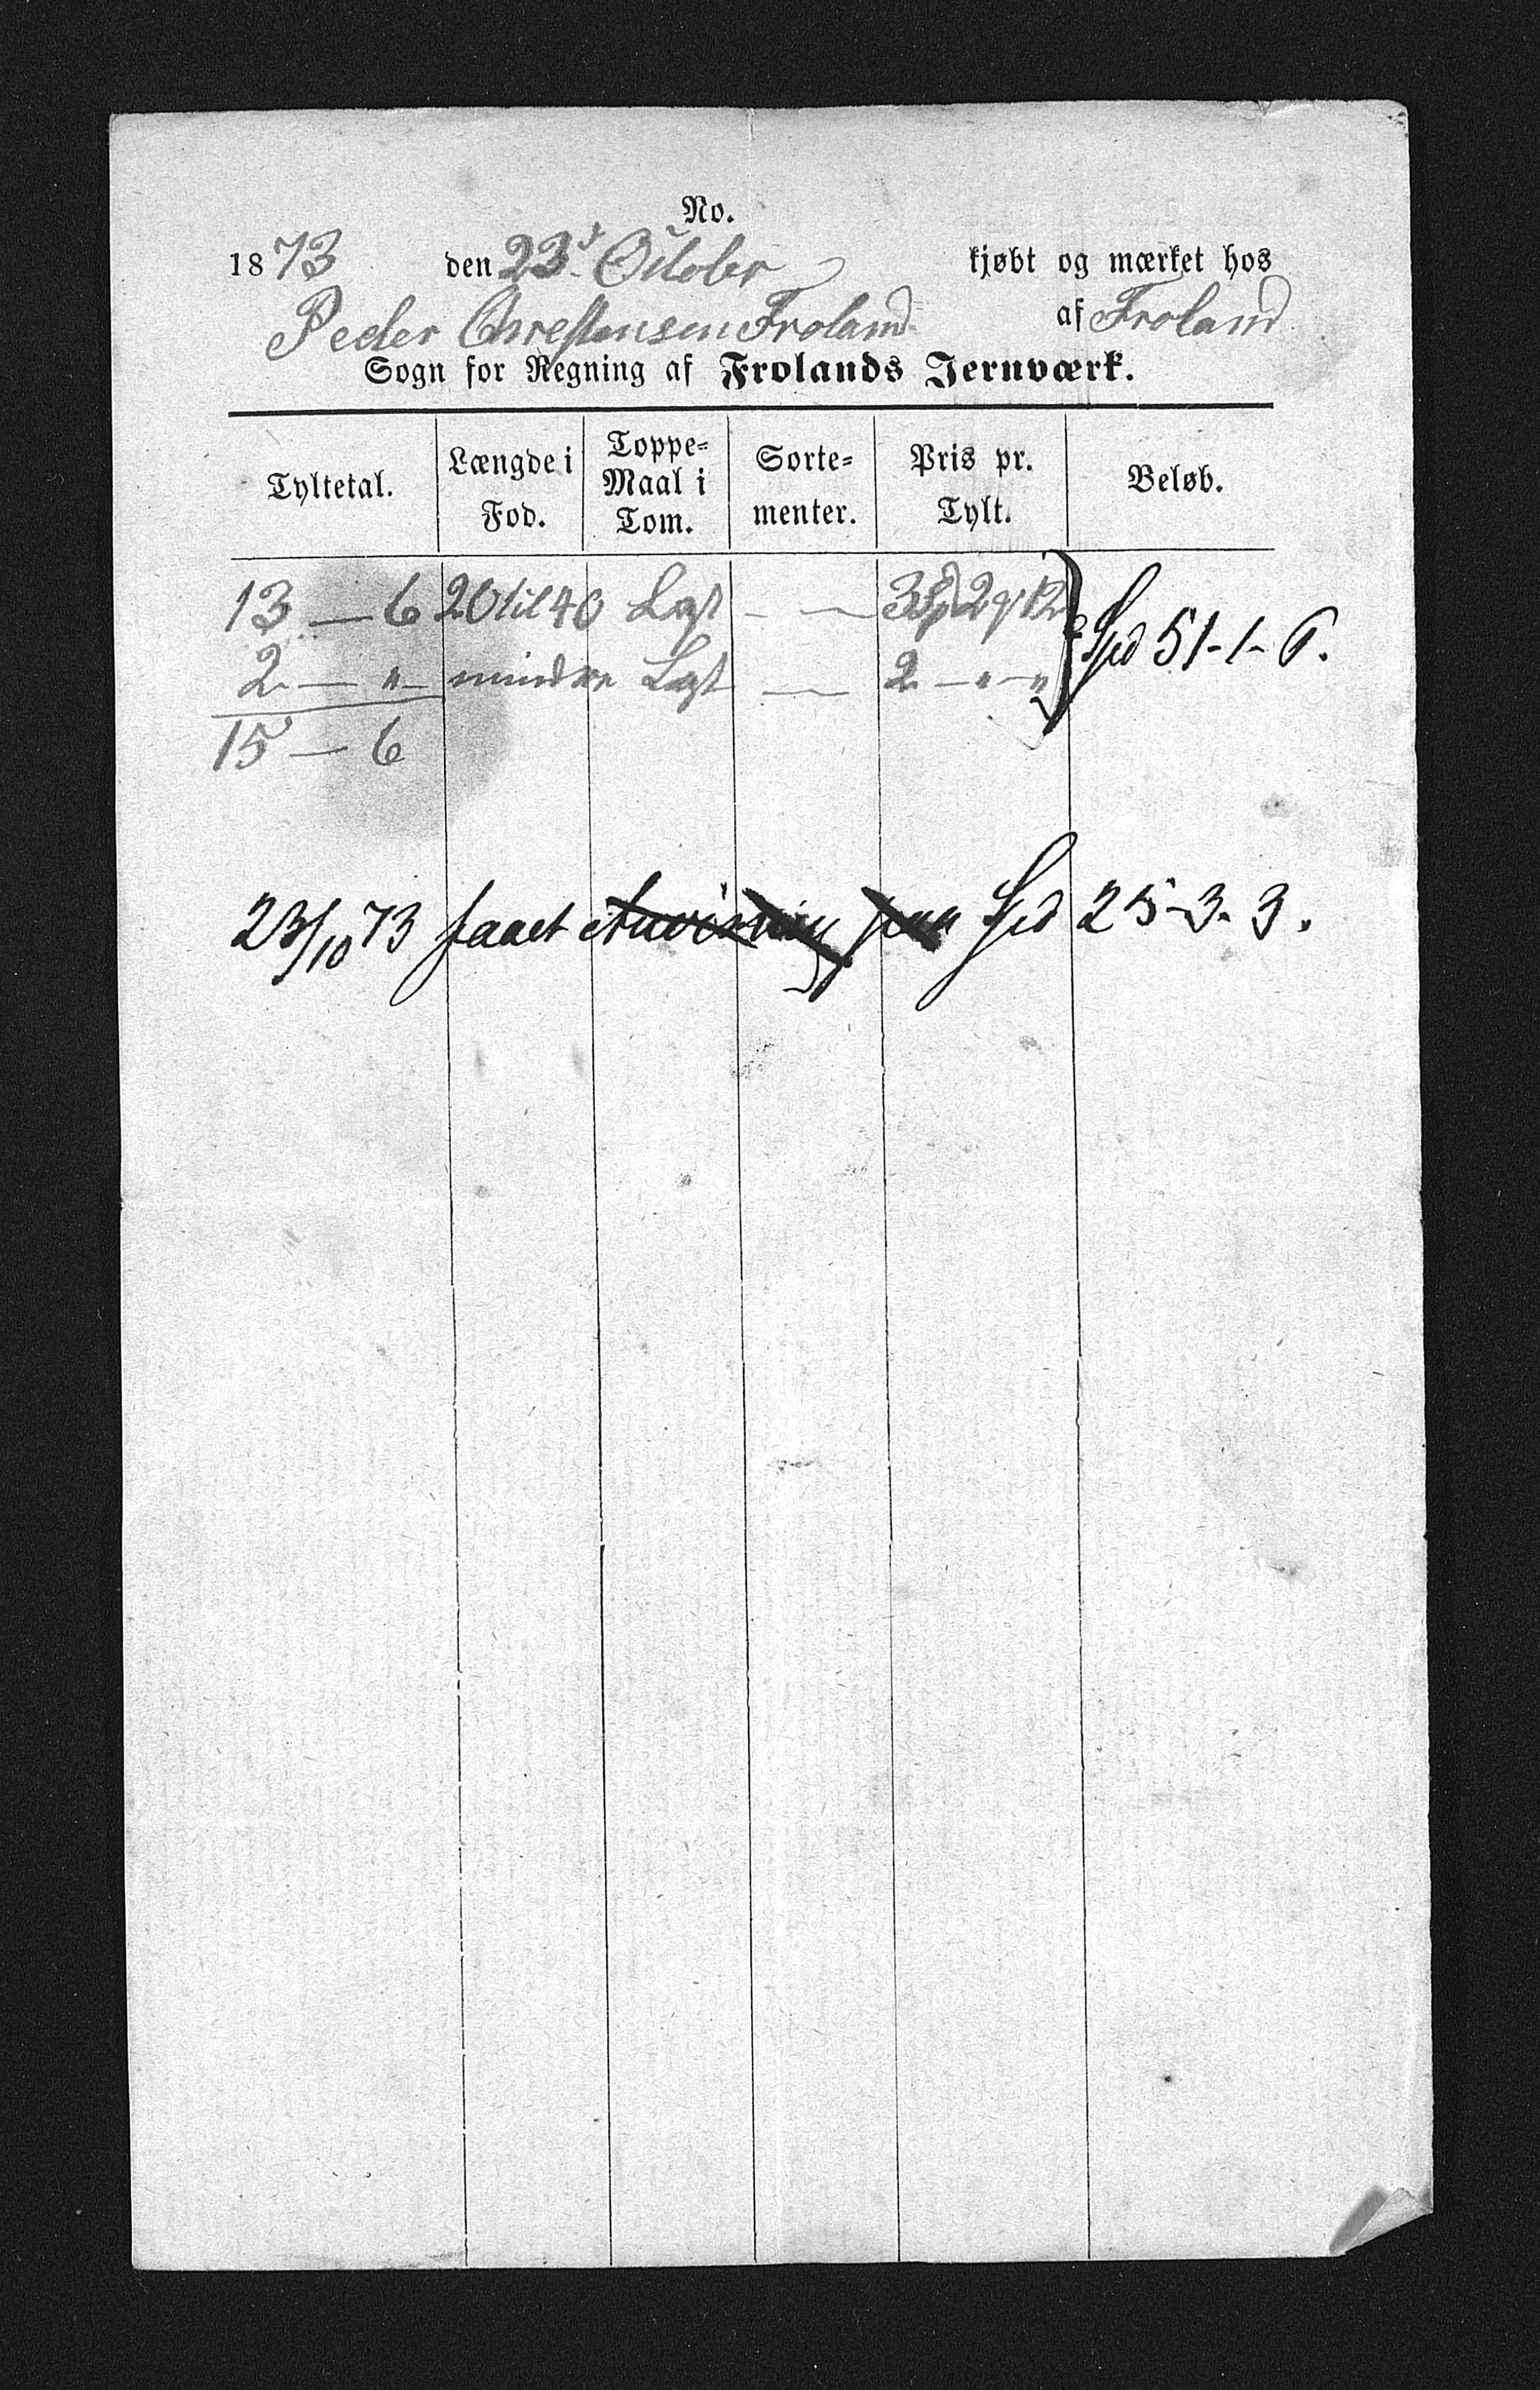 No.
1873 den 23d October kjøbt og mærket hos
Peder Chrestensen Froland af Froland
Sogn for Regning af Frolands Jernværk.
Tyltetal. Længde i Fod. Toppe-Maal i Tom. Sorte-menter. Pris pr. Tylt. Beløb.
13 — 6 20 til 40 Lagt — — 3 Sp 2 12 Spd 51-1-6.
2 — " — mindre Lagt — 2 — " — "
15 — 6
23/10 73 faaet Anvisning paa Spd 25-3-3.